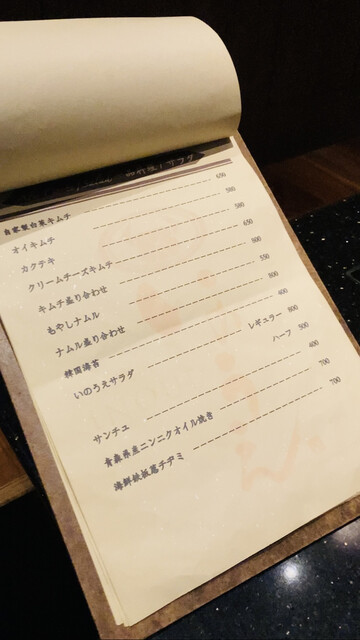 自家製白菜キムチ 650
オイキムチ 500
カクテキ 500
クリームチーズキムチ 650
キムチ盛り合わせ 800
もやしナムル 550
ナムル盛り合わせ 800
韓国海苔 400
いのうえサラダ レギュラー 800
ハーフ 500
サンチュ 400
青森県産ニンニクオイル焼き 700
海鮮鉄板葱チヂミ 700